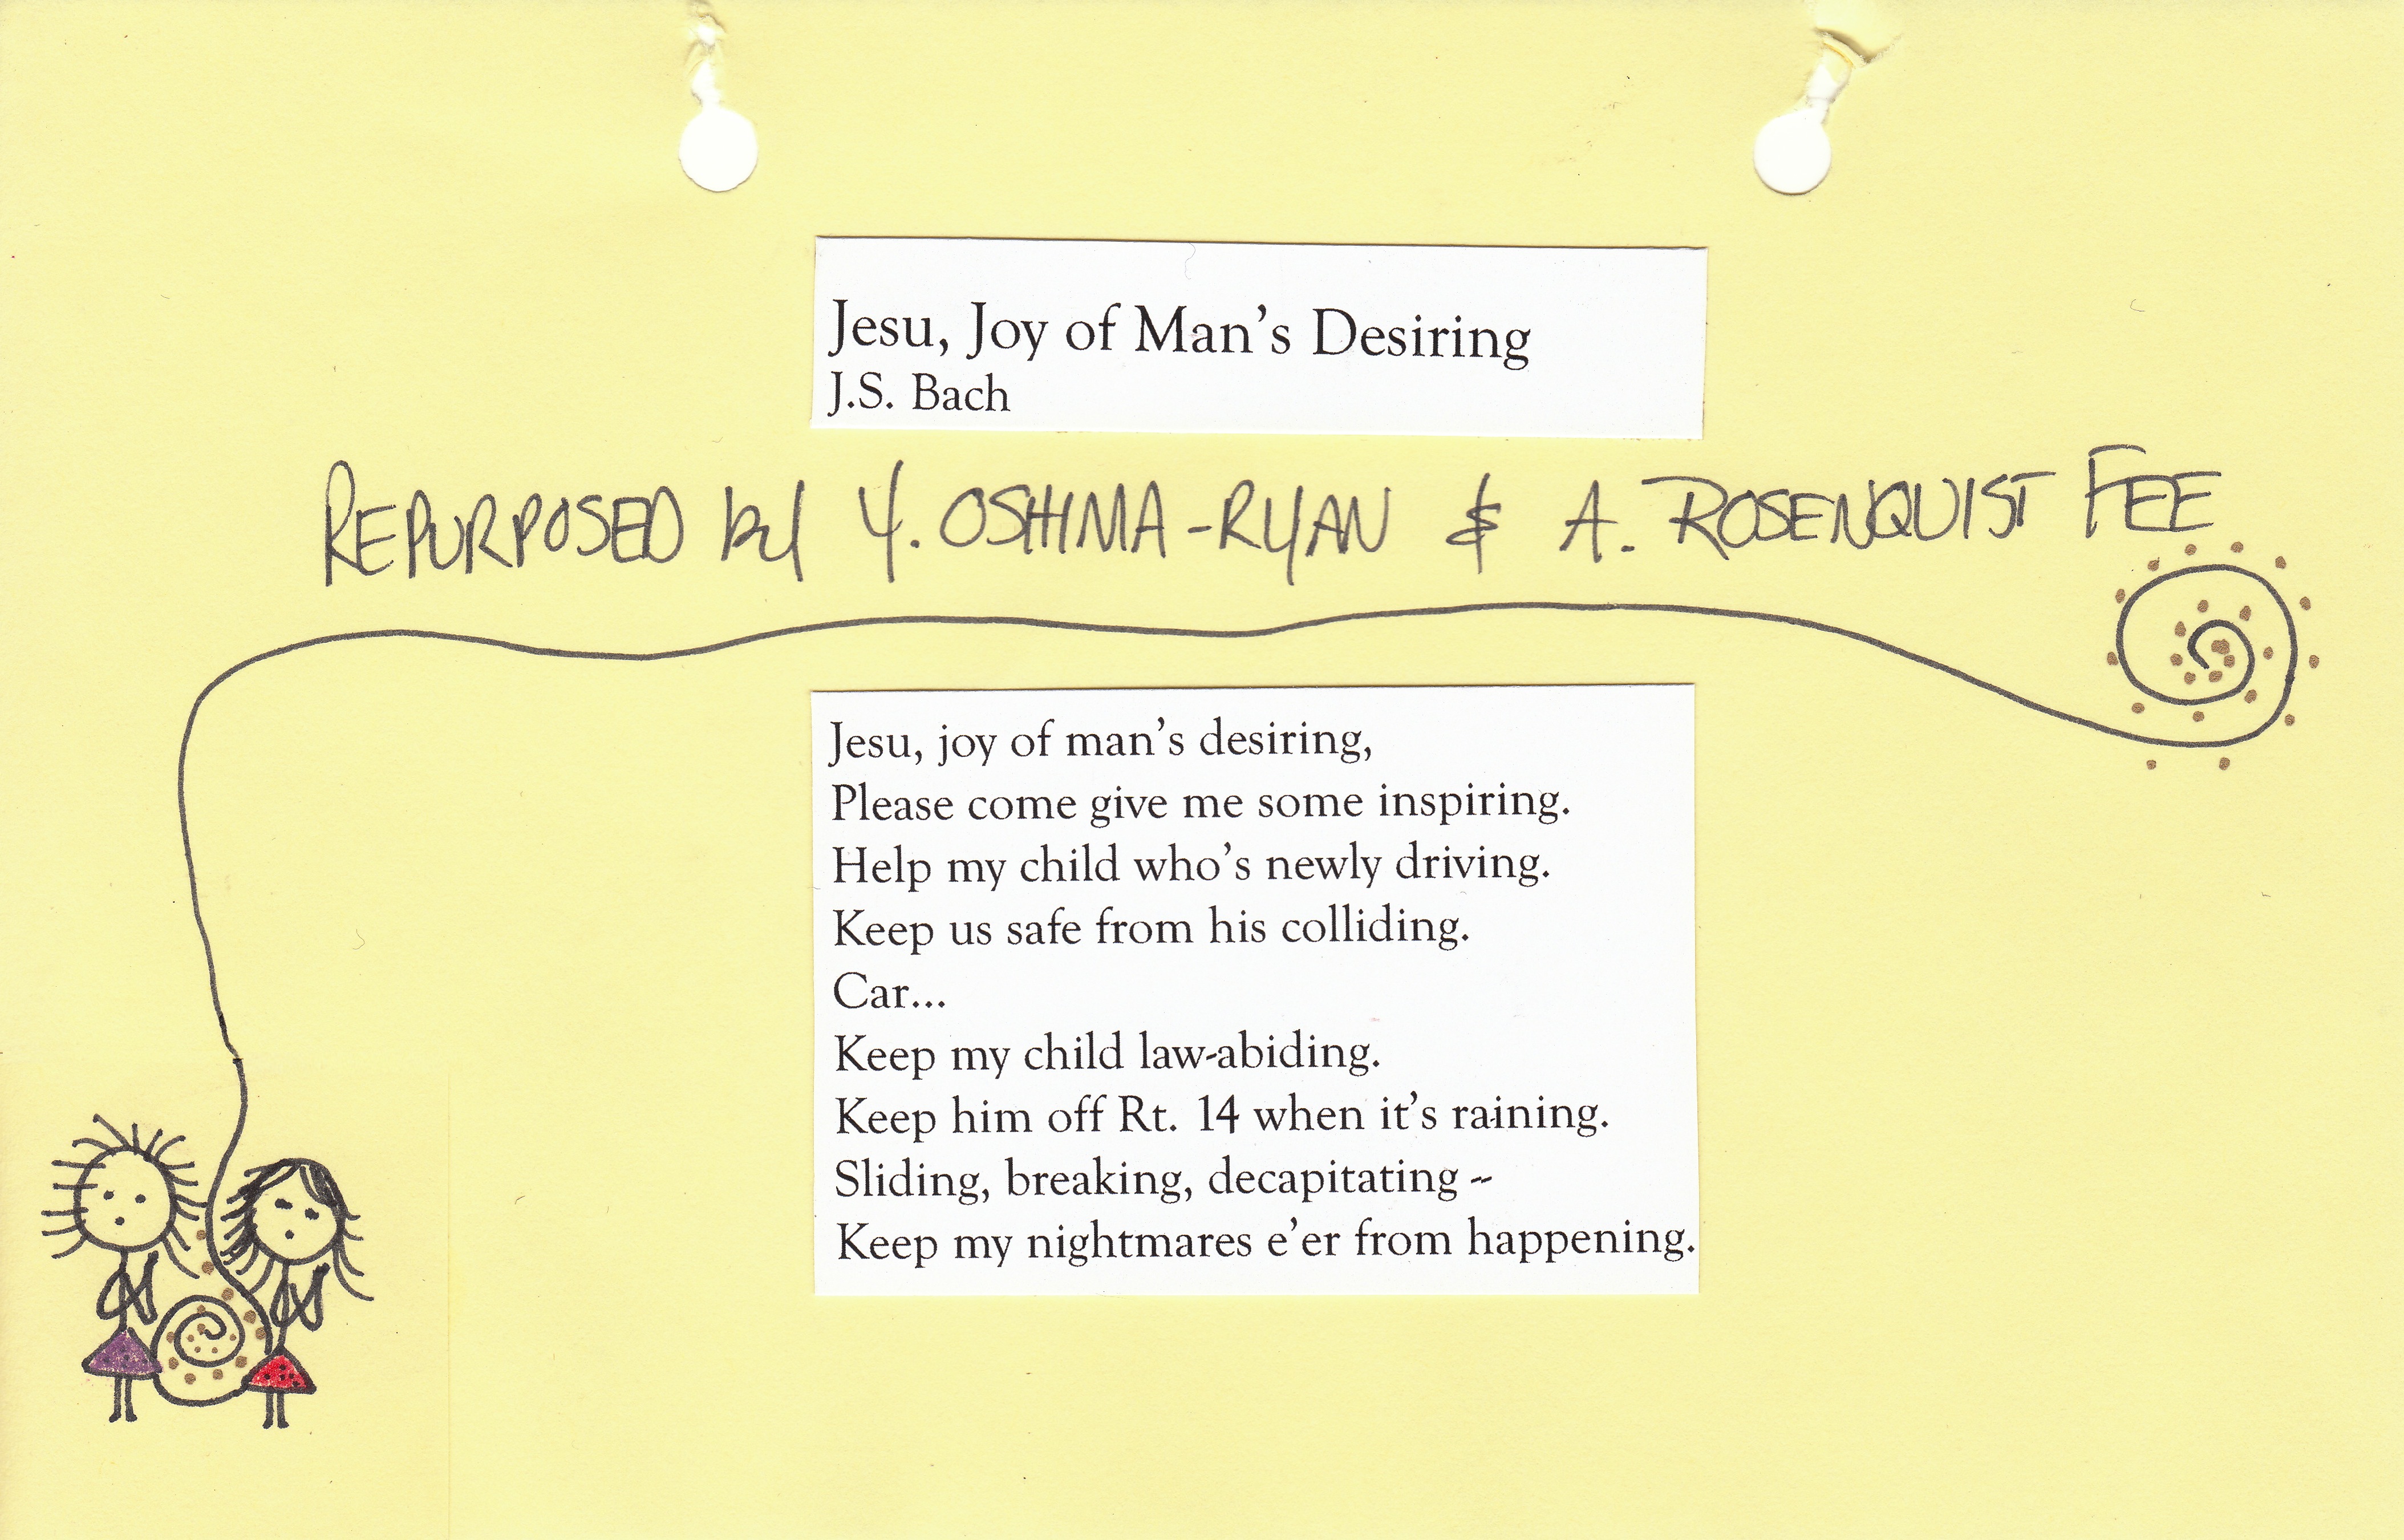 Jesu, Joy of Man's Desiring
J.S. Bach
REPURPOSED by Y. OSHIMA-RYAN & A. ROSENQUIST FEE
Jesu, joy of man's desiring,
Please come give me some inspiring.
Help my child who's newly driving.
Keep us safe from his colliding.
Car...
Keep my child law-abiding.
Keep him off Rt. 14 when it's raining.
Sliding, breaking, decapitating --
Keep my nightmares e'er from happening.